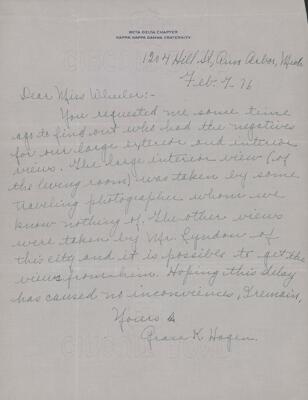 BETA DELTA CHAPTER
KAPPA KAPPA GAMMA FRATERNITY
1204 Hill St, Ann Arbor, Mich
Feb. 7, 16
Dear Miss Wheeler:-
You requested me some time
ago to find out who had the negatives
for our large exterior and interior
views. The large interior view (of
the living room) was taken by some
traveling photographer whom we
know nothing of. The other views
were taken by Mr. Lyndon of
this city and it is possible to get the
views from him. Hoping this delay
has caused no inconviences, I remain,
Yours
Grace K. Hagen.